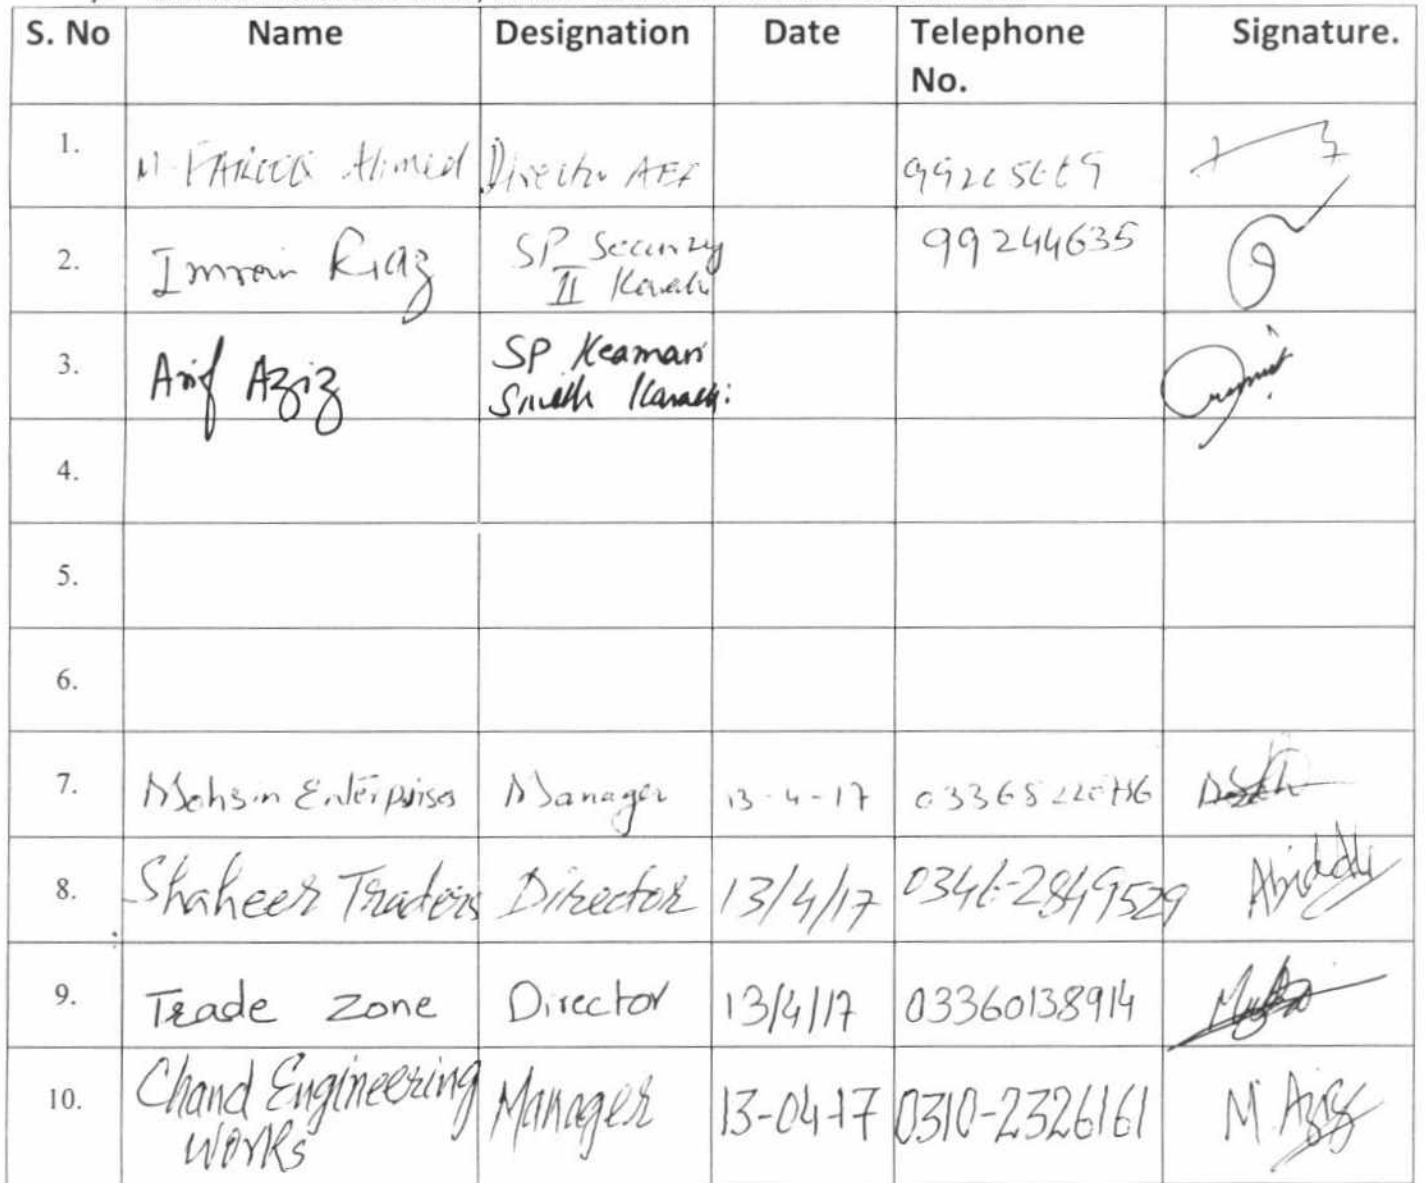 S. No Name Designation Date Telephone No. Signature.
1. M. FAROOQ Ahmed Director AEF
2. Imran Riaz SP Security II Karachi 99244635
3. Arif Aziz SP Keamari South Karachi.
4.
5.
6.
7. Mohsin Enterprises Manager 13-4-17
8. Shaheer Traders Director 13/4/17 0346-2849529
9. Trade Zone Director 13/4/17 03360138914
10. Chand Engineering Works Manager 13-04-17 0310-2326161 M. Aziz